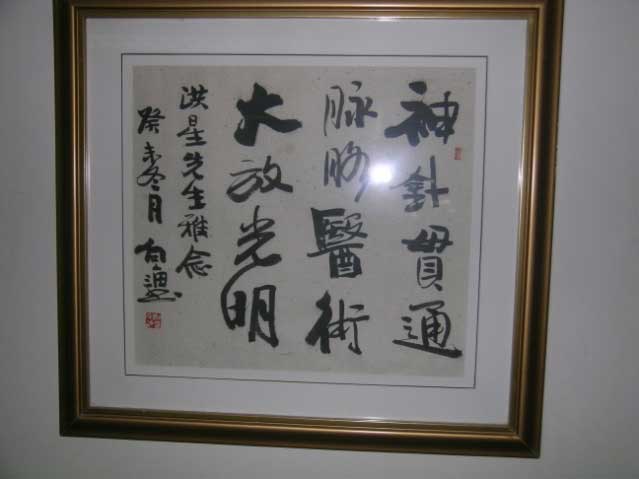 神針貫通
脉胳醫術
大放光明
洪星先生雅念
癸未冬月